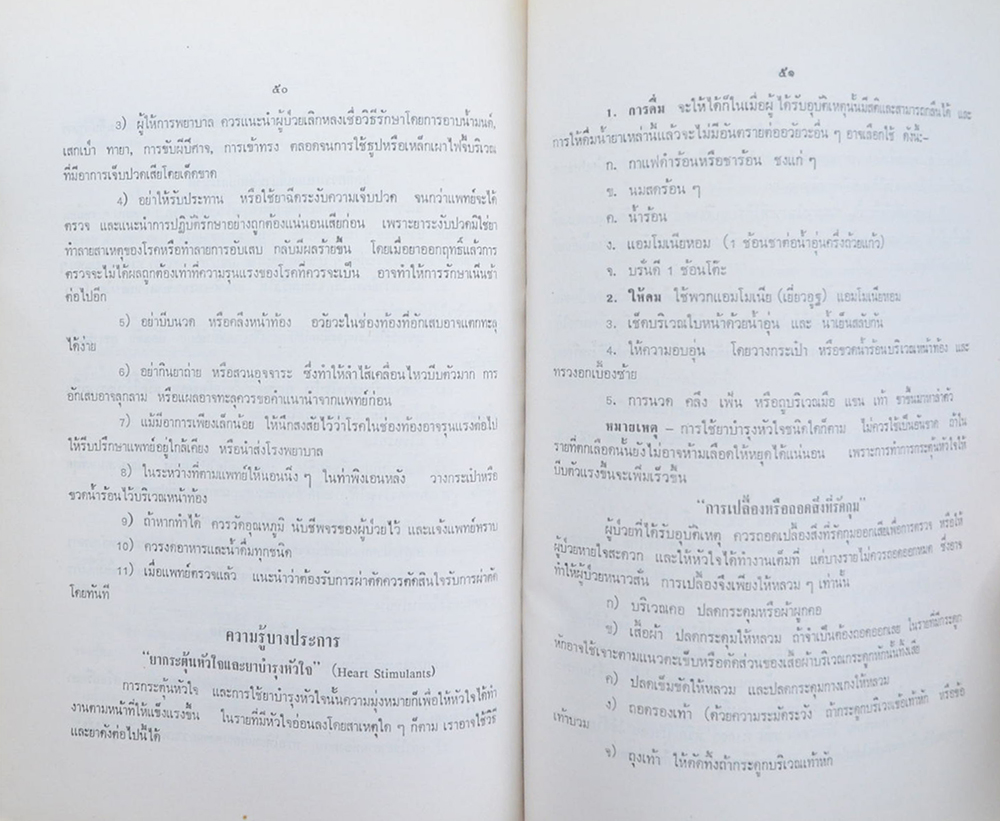 ๕๐
3) ผู้ให้การพยาบาล ควรแนะนำผู้ป่วยเลิกหลงเชื่อวิธีรักษาโดยการอาบน้ำมนต์,
เสกเป่า ทายา, การขับผีปีศาจ, การเข้าทรง ตลอดจนการใช้ธูปหรือเหล็กเผาไฟจี้บริเวณ
ที่มีอาการเจ็บปวดเสียโดยเด็ดขาด
4) อย่าให้รับประทาน หรือใช้ยาฉีดระงับความเจ็บปวด จนกว่าแพทย์จะได้
ตรวจ และแนะนำการปฏิบัติรักษาอย่างถูกต้องแน่นอนเสียก่อน เพราะยาระงับปวดมิใช่ยา
ทำลายสาเหตุของโรคหรือทำลายการอับเสบ กลับมีผลร้ายขึ้น โดยเมื่อยาออกฤทธิ์แล้วการ
ตรวจจะไม่ได้ผลถูกต้องเท่าที่ความรุนแรงของโรคที่ควรจะเป็น อาจทำให้การรักษาเนิ่นช้า
ต่อไปอีก
5) อย่าบีบนวด หรือคลึงหน้าท้อง อวัยวะในช่องท้องที่อักเสบอาจแตกทะลุ
ได้ง่าย
6) อย่ากินยาถ่าย หรือสวนอุจจาระ ซึ่งทำให้ลำไส้เคลื่อนไหวบีบตัวมาก การ
อักเสบอาจลุกลาม หรือแผลอาจทะลุควรขอคำแนะนำจากแพทย์ก่อน
7) แม้มีอาการเพียงเล็กน้อย ให้นึกสงสัยไว้ว่าโรคในช่องท้องอาจรุนแรงต่อไป
ให้รีบปรึกษาแพทย์อยู่ใกล้เคียง หรือนำส่งโรงพยาบาล
8) ในระหว่างที่ตามแพทย์ให้นอนนิ่ง ๆ ในท่าพิงเอนหลัง วางกระเป๋าหรือ
ขวดน้ำร้อนไว้บริเวณหน้าท้อง
9) ถ้าหากทำได้ ควรวัดอุณหภูมิ นับชีพจรของผู้ป่วยไว้ และแจ้งแพทย์ทราบ
10) ควรงดอาหารและน้ำดื่มทุกชนิด
11) เมื่อแพทย์ตรวจแล้ว แนะนำว่าต้องรับการผ่าตัดควรตัดสินใจรับการผ่าตัด
โดยทันที
ความรู้บางประการ
"ยากระตุ้นหัวใจและยาบำรุงหัวใจ" (Heart Stimulants)
การกระตุ้นหัวใจ และการใช้ยาบำรุงหัวใจนั้นความมุ่งหมายก็เพื่อให้หัวใจได้ทำ
งานตามหน้าที่ให้แข็งแรงขึ้น ในรายที่มีหัวใจอ่อนลงโดยสาเหตุใด ๆ ก็ตาม เราอาจใช้วิธี
และยาดังต่อไปนี้ได้
๕๑
1. การดื่ม จะให้ได้ก็ในเมื่อผู้ได้รับอุบัติเหตุนั้นมีสติและสามารถกลืนได้ และ
การให้ดื่มน้ำยาเหล่านี้แล้วจะไม่มีอันตรายต่ออวัยวะอื่น ๆ อาจเลือกใช้ ดังนี้:-
ก. กาแฟดำร้อนหรือชาร้อน ชงแก่ ๆ
ข. นมสดร้อน ๆ
ค. น้ำร้อน
ง. แอมโมเนียหอม (1 ช้อนชาต่อน้ำอุ่นครึ่งถ้วยแก้ว)
จ. บรั่นดี 1 ช้อนโต๊ะ
2. ให้ดม ใช้พวกแอมโมเนีย (เยี่ยวอูฐ) แอมโมเนียหอม
3. เช็ดบริเวณใบหน้าด้วยน้ำอุ่น และ น้ำเย็นสลับกัน
4. ให้ความอบอุ่น โดยวางกระเป๋า หรือขวดน้ำร้อนบริเวณหน้าท้อง และ
ทรวงอกเบื้องซ้าย
5. การนวด คลึง เฟ้น หรือถูบริเวณมือ แขน เท้า ขาขึ้นมาหาลำตัว
หมายเหตุ – การใช้ยาบำรุงหัวใจชนิดใดก็ตาม ไม่ควรใช้เป็นอันขาด ถ้าใน
รายที่ตกเลือดนั้นยังไม่อาจห้ามเลือดให้หยุดได้แน่นอน เพราะการทำการกระตุ้นหัวใจให้
บีบตัวแรงขึ้นจะเพิ่มเร็วขึ้น
"การเปลื้องหรือถอดสิ่งที่รัดกุม"
ผู้ป่วยที่ได้รับอุบัติเหตุ ควรถอดเปลื้องสิ่งที่รัดกุมออกเสียเพื่อการตรวจ หรือให้
ผู้ป่วยหายใจสะดวก และให้หัวใจได้ทำงานเต็มที่ แต่บางรายไม่ควรถอดออกหมด ซึ่งอาจ
ทำให้ผู้ป่วยหนาวสั่น การเปลื้องจึงเพียงให้หลวม ๆ เท่านั้น
ก) บริเวณคอ ปลดกระดุมหรือผ้าผูกคอ
ข) เสื้อผ้า ปลดกระดุมให้หลวม ถ้าจำเป็นต้องถอดออกเลย ในรายที่มีกระดูก
หักอาจใช้เจาะตามแนวตะเข็บหรือตัดส่วนของเสื้อผ้าบริเวณกระดูกหักนั้นทิ้งเสีย
ค) ปลดเข็มขัดให้หลวม และปลดกระดุมกางเกงให้หลวม
ง) ถอดรองเท้า (ด้วยความระมัดระวัง ถ้ากระดูกบริเวณข้อเท้าหัก หรือข้อ
เท้าบวม
จ) ถุงเท้า ให้ตัดทิ้งถ้ากระดูกบริเวณเท้าหัก